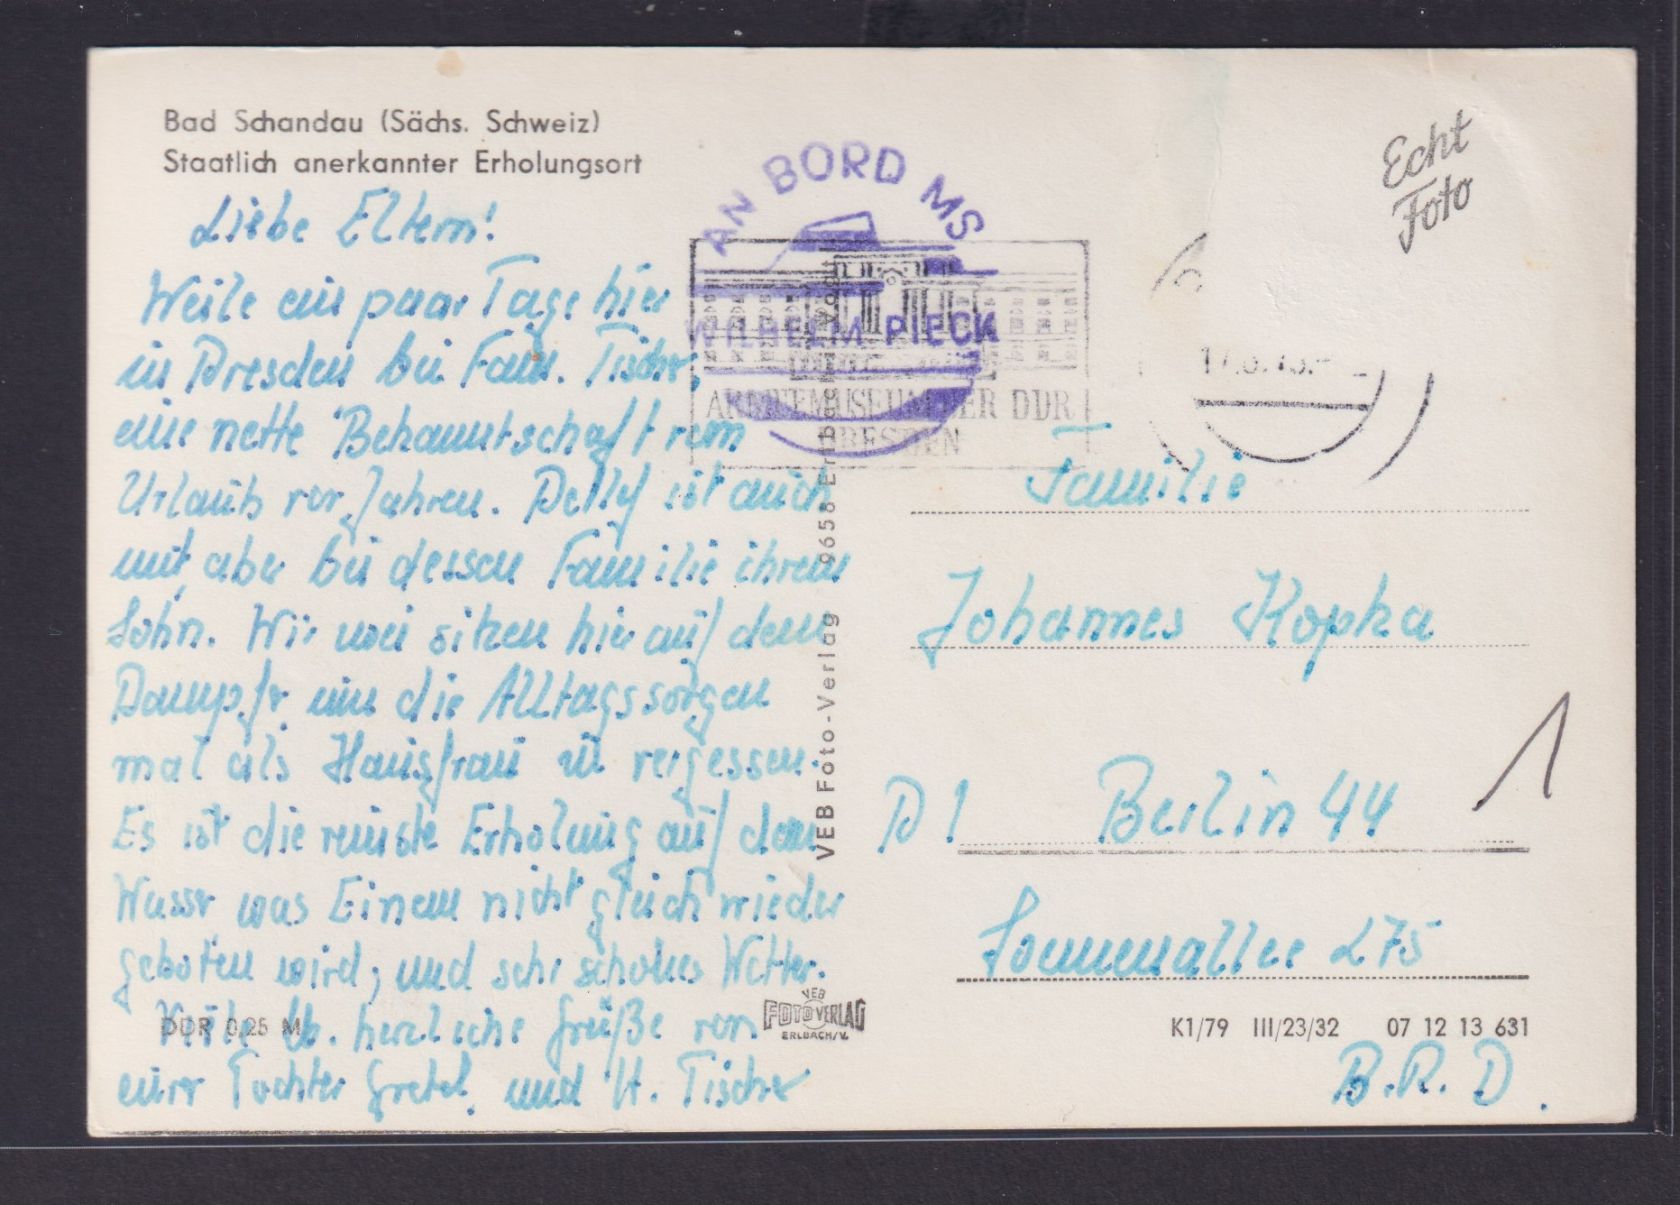 Bad Schandau (Sächs. Schweiz)
Staatlich anerkannter Erholungsort
Echt
Foto
AN BORD MS
WILHELM PIECK
ARMEEMUSEUM DER DDR
DRESDEN
Liebe Eltern!
Weile ein paar Tage hier
in Dresden bei Fam. Tischer,
eine nette Bekanntschaft vom
Urlaub vor Jahren. Detlef ist auch
mit, aber bei dessen Familie ihrem
Sohn. Wir zwei sitzen hier auf dem
Dampfr um die Alltagssorgen
mal als Hausfrau zu vergessen.
Es ist die reinste Erholung auf dem
Wasser was Einem nicht gleich wieder
geboten wird, und sehr schönes Wetter.
Viele herzliche Grüße von
eurer Tochter Gretel und H. Tischer
DDR 0,25 M
VEB Foto-Verlag 9658 Erlbach
VEB
FOTOVERLAG
ERLBACH/V.
Familie
Johannes Kopka
D 1 Berlin 44
Sonnenallee 275
K1/79 III/23/32 07 12 13 631
B.R.D.
1